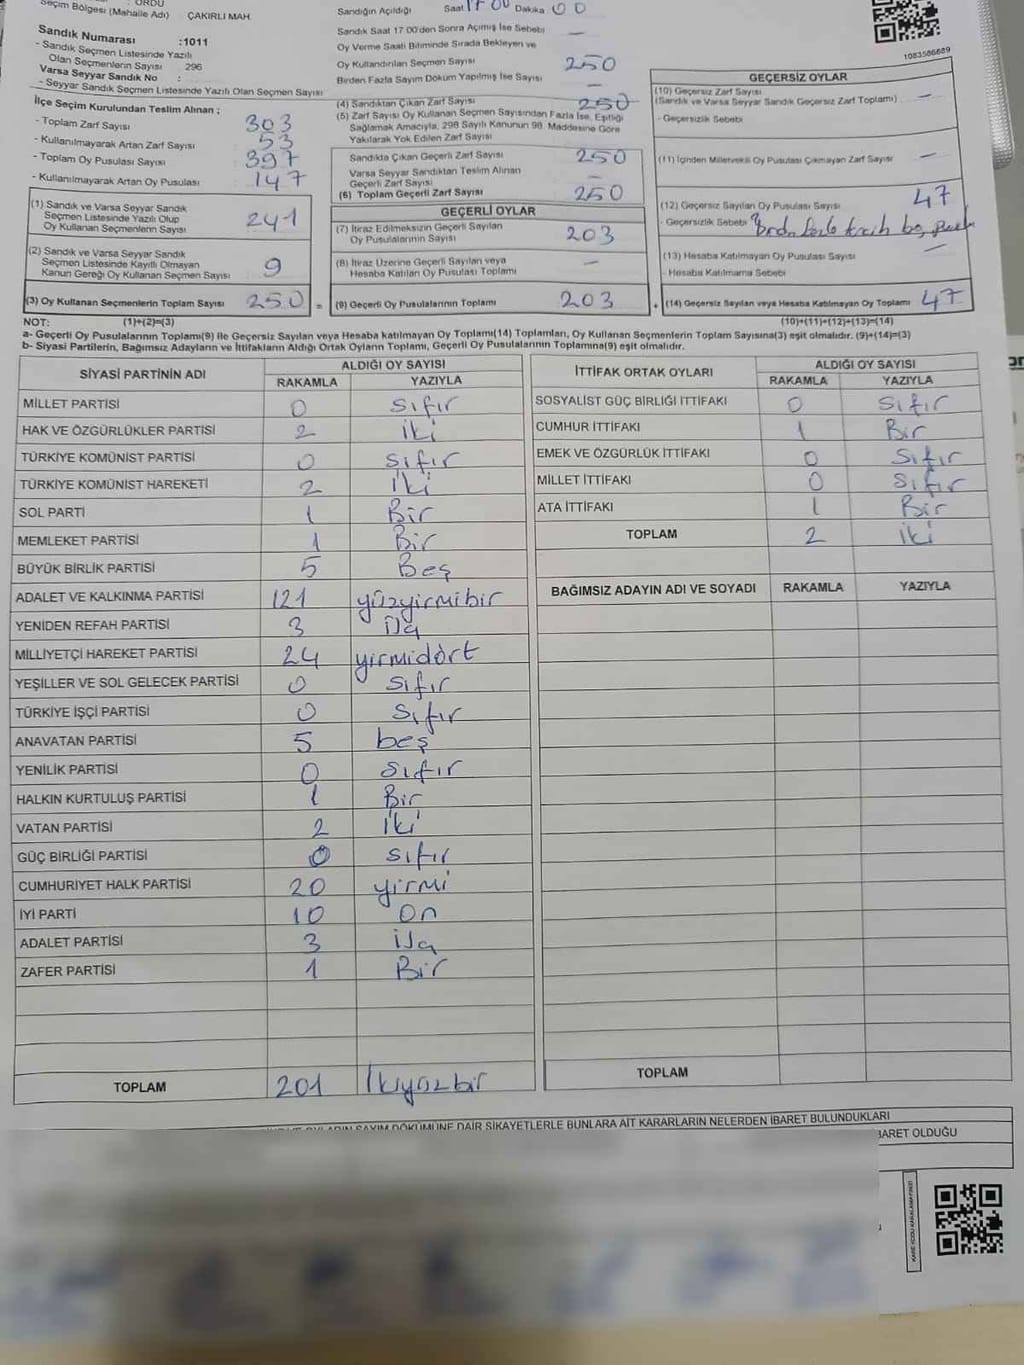 : ORDU
Seçim Bölgesi (Mahalle Adı) ÇAKIRLI MAH.
Sandık Numarası :1011
- Sandık Seçmen Listesinde Yazılı
Olan Seçmenlerin Sayısı 296
Varsa Seyyar Sandık No :
- Seyyar Sandık Seçmen Listesinde Yazılı Olan Seçmen Sayısı
İlçe Seçim Kurulundan Teslim Alınan ;
- Toplam Zarf Sayısı 303
- Kullanılmayarak Artan Zarf Sayısı 53
- Toplam Oy Pusulası Sayısı 397
- Kullanılmayarak Artan Oy Pusulası 147
(1) Sandık ve Varsa Seyyar Sandık
Seçmen Listesinde Yazılı Olup
Oy Kullanan Seçmenlerin Sayısı 241
(2) Sandık ve Varsa Seyyar Sandık
Seçmen Listesinde Kayıtlı Olmayan
Kanun Gereği Oy Kullanan Seçmen Sayısı 9
(3) Oy Kullanan Seçmenlerin Toplam Sayısı 250 =
Sandığın Açıldığı Saat 17 00 Dakika 00
Sandık Saat 17 00'den Sonra Açımış İse Sebebi —
Oy Verme Saati Bitiminde Sırada Bekleyen ve
Oy Kullandırılan Seçmen Sayısı 250
Birden Fazla Sayım Döküm Yapılmış İse Sayısı —
(4) Sandıktan Çıkan Zarf Sayısı 250
(5) Zarf Sayısı Oy Kullanan Seçmen Sayısından Fazla İse, Eşitliği
Sağlamak Amacıyla, 298 Sayılı Kanunun 98. Maddesine Göre
Yakılarak Yok Edilen Zarf Sayısı
Sandıkta Çıkan Geçerli Zarf Sayısı 250
Varsa Seyyar Sandıktan Teslim Alınan
Geçerli Zarf Sayısı —
(6) Toplam Geçerli Zarf Sayısı 250
GEÇERLİ OYLAR
(7) İtiraz Edilmeksizin Geçerli Sayılan
Oy Pusulalarının Sayısı 203
(8) İtiraz Üzerine Geçerli Sayılan veya
Hesaba Katılan Oy Pusulası Toplamı —
(9) Geçerli Oy Pusulalarının Toplamı 203 +
1083586689
GEÇERSİZ OYLAR
(10) Geçersiz Zarf Sayısı
(Sandık ve Varsa Seyyar Sandık Geçersiz Zarf Toplamı) —
- Geçersizlik Sebebi
(11) İçinden Milletvekili Oy Pusulası Çıkmayan Zarf Sayısı —
(12) Geçersiz Sayılan Oy Pusulası Sayısı 47
- Geçersizlik Sebebi
(13) Hesaba Katılmayan Oy Pusulası Sayısı —
- Hesaba Katılmama Sebebi
(14) Geçersiz Sayılan veya Hesaba Katılmayan Oy Toplamı 47
NOT: (1)+(2)=(3) (10)+(11)+(12)+(13)=(14)
a- Geçerli Oy Pusulalarının Toplamı(9) ile Geçersiz Sayılan veya Hesaba katılmayan Oy Toplamı(14) Toplamları, Oy Kullanan Seçmenlerin Toplam Sayısına(3) eşit olmalıdır. (9)+(14)=(3)
b- Siyasi Partilerin, Bağımsız Adayların ve İttifakların Aldığı Ortak Oyların Toplamı, Geçerli Oy Pusulalarının Toplamına(9) eşit olmalıdır.
SİYASİ PARTİNİN ADI ALDIĞI OY SAYISI
RAKAMLA YAZIYLA
MİLLET PARTİSİ 0 sıfır
HAK VE ÖZGÜRLÜKLER PARTİSİ 2 iki
TÜRKİYE KOMÜNİST PARTİSİ 0 sıfır
TÜRKİYE KOMÜNİST HAREKETİ 2 iki
SOL PARTİ 1 Bir
MEMLEKET PARTİSİ 1 Bir
BÜYÜK BİRLİK PARTİSİ 5 Beş
ADALET VE KALKINMA PARTİSİ 121 yüzyirmibir
YENİDEN REFAH PARTİSİ 3 üç
MİLLİYETÇİ HAREKET PARTİSİ 24 yirmidört
YEŞİLLER VE SOL GELECEK PARTİSİ 0 sıfır
TÜRKİYE İŞÇİ PARTİSİ 0 sıfır
ANAVATAN PARTİSİ 5 beş
YENİLİK PARTİSİ 0 sıfır
HALKIN KURTULUŞ PARTİSİ 1 Bir
VATAN PARTİSİ 2 iki
GÜÇ BİRLİĞİ PARTİSİ 0 sıfır
CUMHURİYET HALK PARTİSİ 20 yirmi
İYİ PARTİ 10 on
ADALET PARTİSİ 3 üç
ZAFER PARTİSİ 1 Bir
TOPLAM 201 İkiyüzbir
İTTİFAK ORTAK OYLARI ALDIĞI OY SAYISI
RAKAMLA YAZIYLA
SOSYALİST GÜÇ BİRLİĞİ İTTİFAKI 0 sıfır
CUMHUR İTTİFAKI 1 Bir
EMEK VE ÖZGÜRLÜK İTTİFAKI 0 sıfır
MİLLET İTTİFAKI 0 sıfır
ATA İTTİFAKI 1 Bir
TOPLAM 2 iki
BAĞIMSIZ ADAYIN ADI VE SOYADI RAKAMLA YAZIYLA
TOPLAM
OYLARIN SAYIM DÖKÜMÜNE DAİR ŞİKAYETLERLE BUNLARA AİT KARARLARIN NELERDEN İBARET BULUNDUKLARI
BARET OLDUĞU